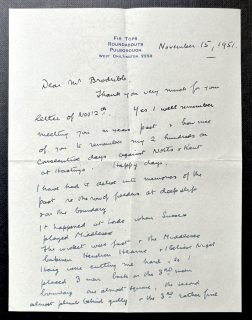 FIR TOPS
ROUNDABOUTS
PULBOROUGH
WEST CHILTINGTON 2250
November 15, 1951.
Dear Mr Brodribb
Thank you very much for your
letter of Nov 12th. Yes I well remember
meeting you in years past & how nice
of you to remember my 2 hundreds on
consecutive days against Notts & Kent
at Hastings. Happy days.
I have had to delve into memories of the
past
on the boundary.
It happened at Lords when Sussex
played Middlesex
The wicket was fast & the Middlesex
batsmen Hendren Hearne & I believe Nigel
Haig were cutting me hard, so I
placed 3 men back on the 3rd man
boundary one almost square, the second
almost behind gully & the 3rd rather fine